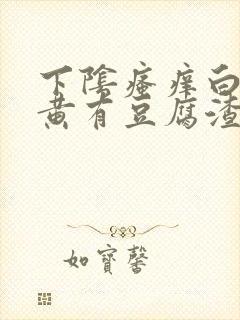 下陰瘙痒白
黄有豆腐渣
如寳馨